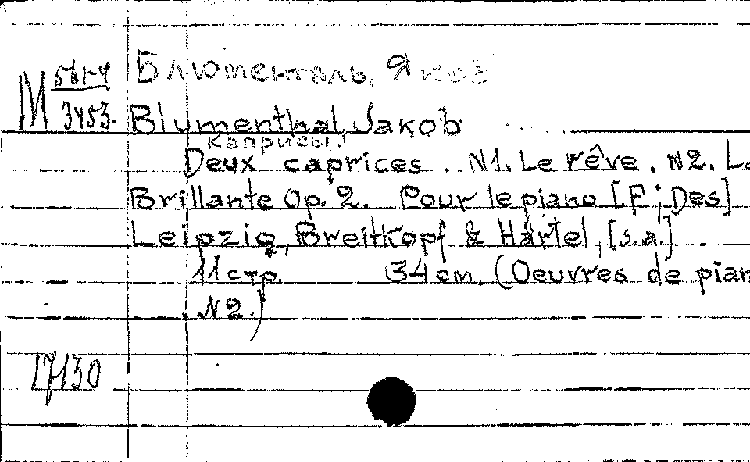 Блюменталь, Яков
М
3453.
Blumenthal, Jakob
Капризы
Deux caprices. N1. Le rêve. N2. La
Brillante Op. 2. Pour le piano [F; Des]
Leipzig, Breitkopf & Härtel, [s.a.]
11 стр. 34 cm. (Oeuvres de pian
N2.)
17130